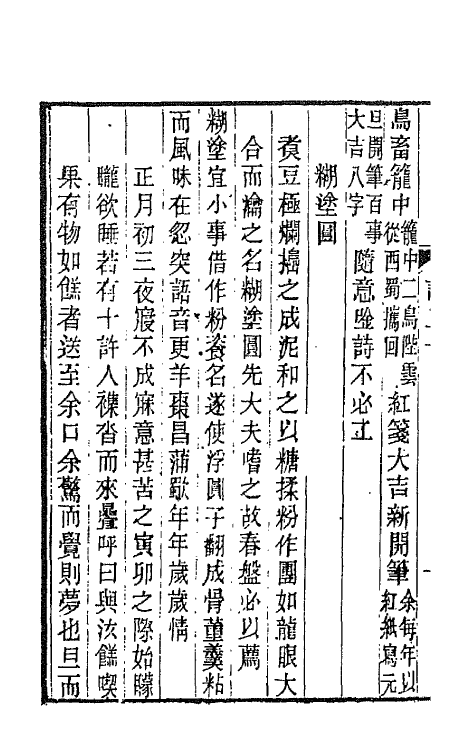 鳥畜籠中籠中二鳥陛雲從西蜀攜回紅箋大吉新開筆余每年以紅紙寫元
旦開筆百事大吉八字隨意賦詩不必工
糊塗圓
煑豆極爛擣之成泥和之以糖揉粉作團如龍眼大
合而瀹之名糊塗圓先大夫嗜之故春盤必以薦
糊塗宜小事借作粉餈名遂使浮圓子翻成骨董羹粘
而風味在忽突語音更羊棗昌蒲歜年年歲歲情
正月初三夜寢不成寐意甚苦之寅卯之際始矇
矓欲睡若有十許人襍沓而來疊呼曰與汝餻喫
果有物如餻者送至余口余驚而覺則夢也旦而